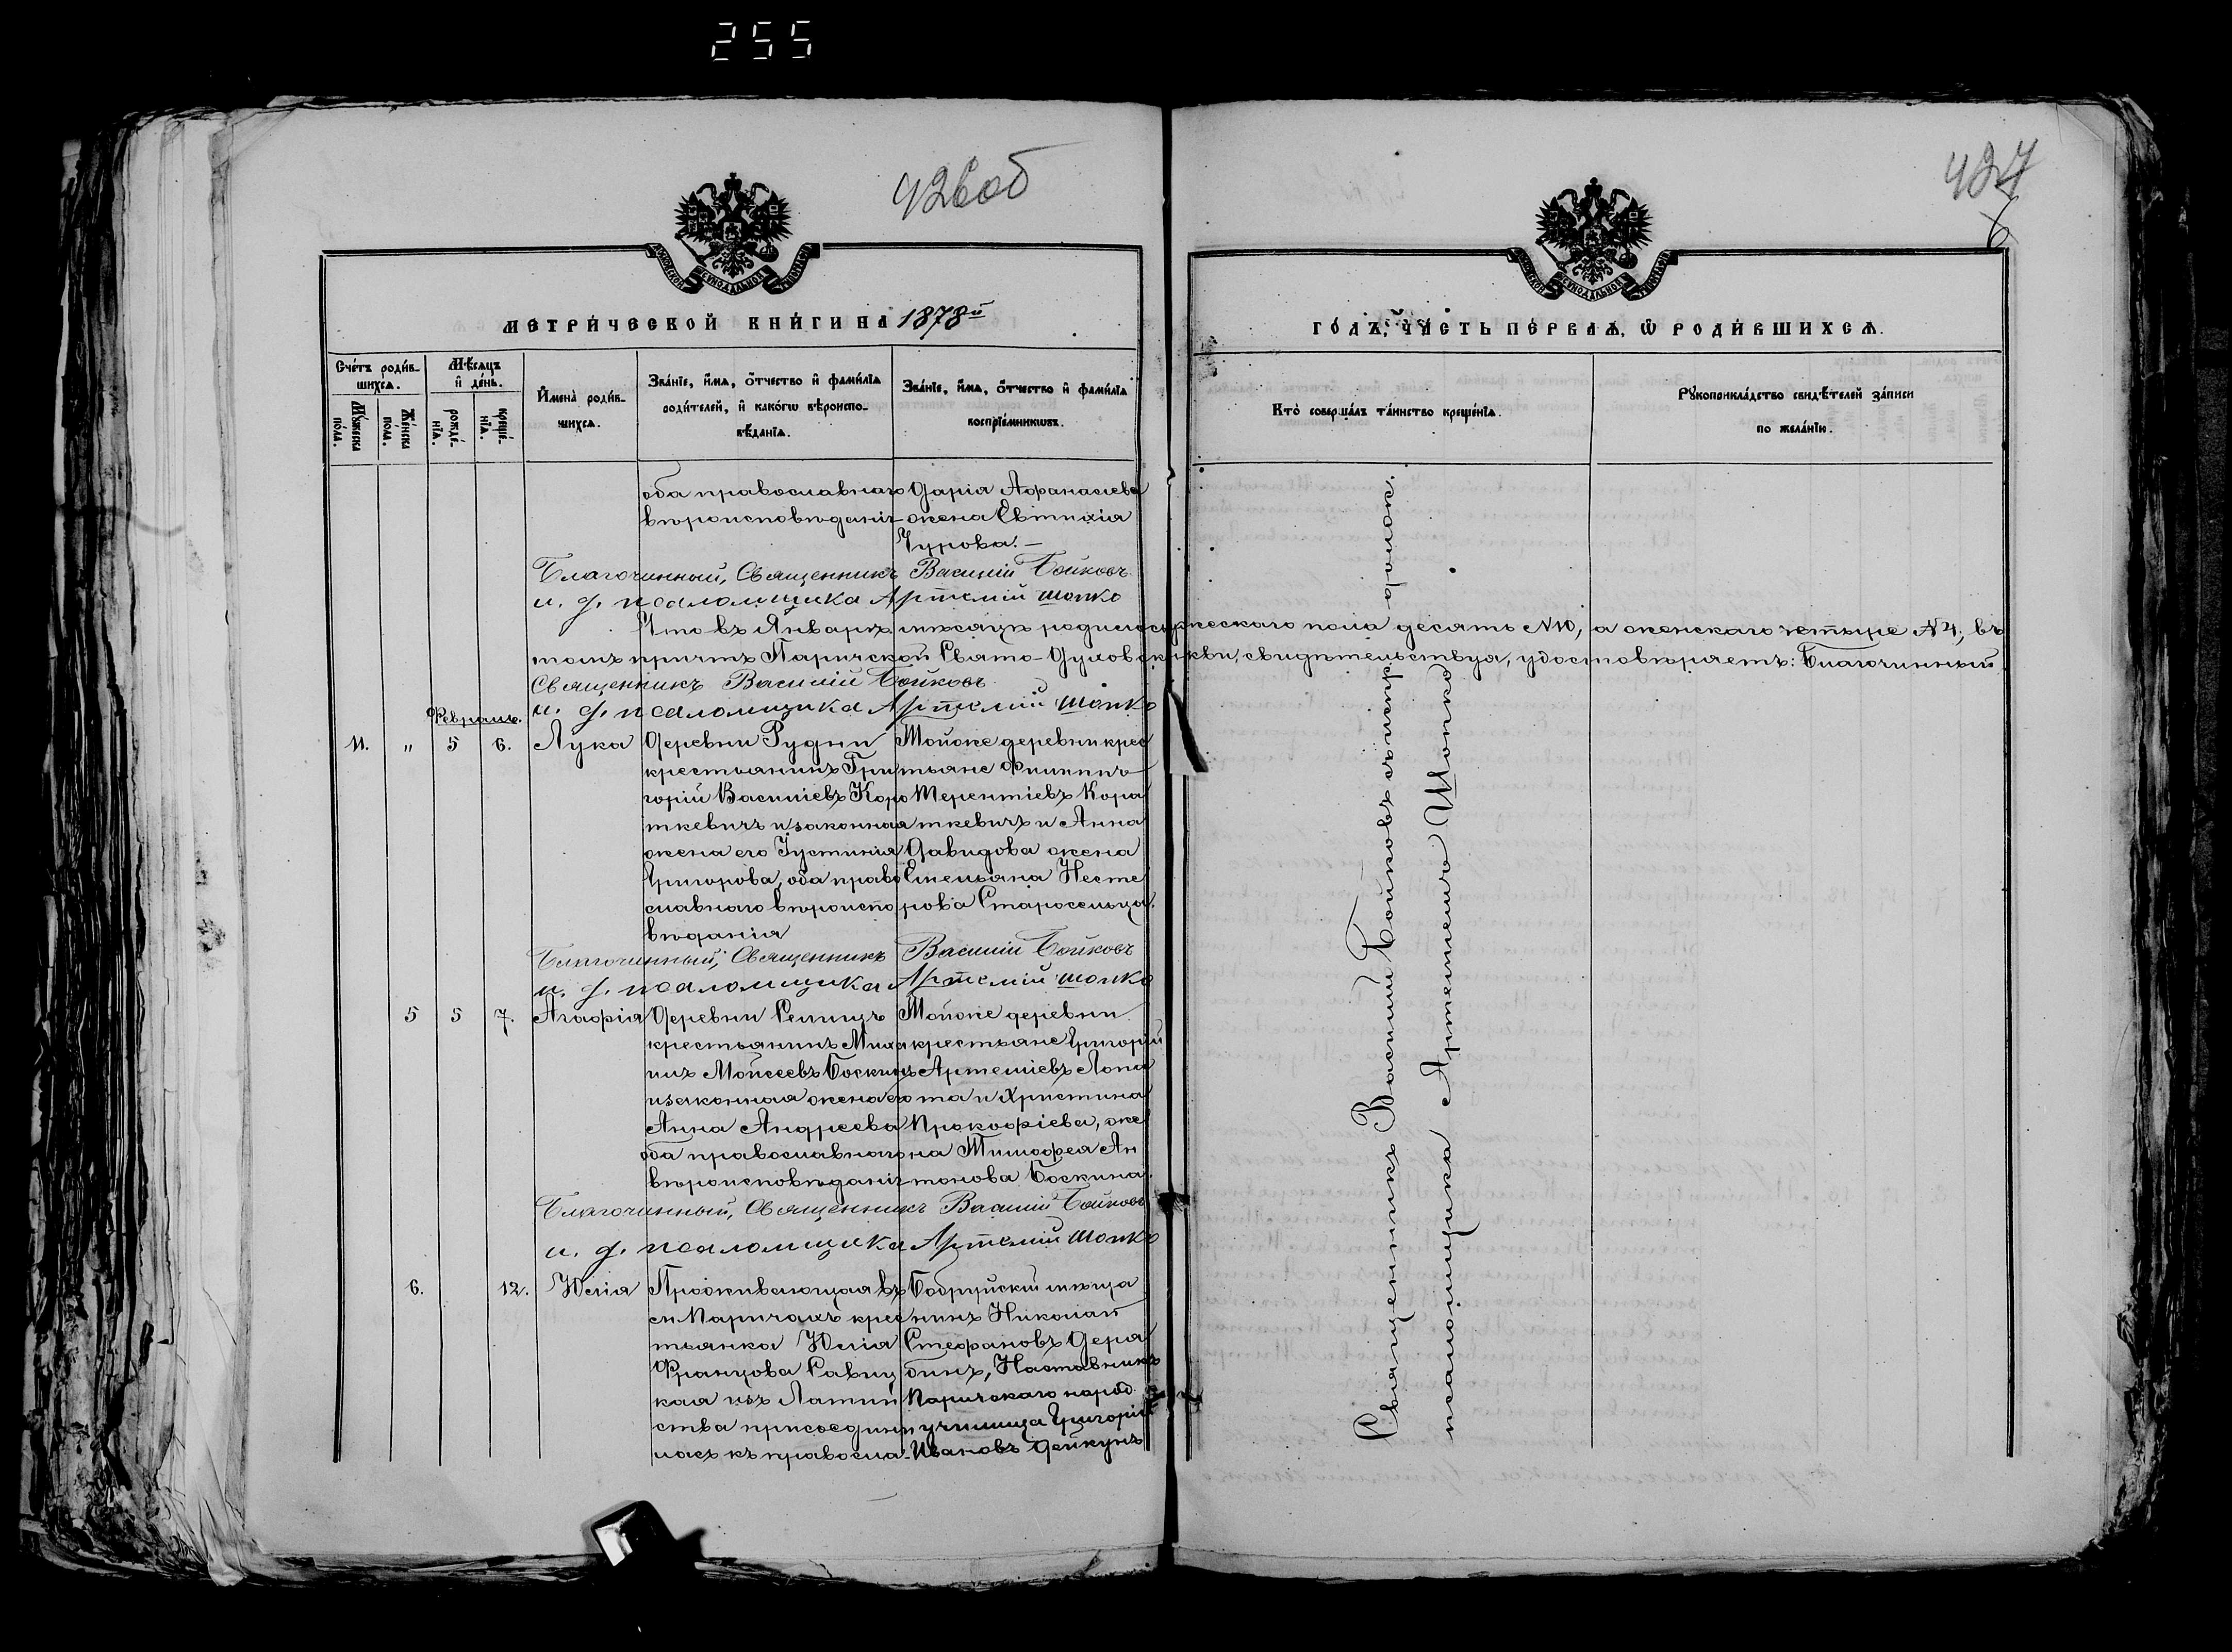 255
426об
427
6
МЕТРИЧЕСКОЙ КНИГИ НА 1878й
ГОДЪ, ЧАСТЬ ПЕРВАЯ, Ѡ РОДИВШИХСЯ.
Счетъ родив-
шихся.
Мѣсяцъ
и день.
Мужеска
пола.
Женска
пола.
рожде-
нія.
креще-
нія.
Имена родив-
шихся.
Званіе, имя, отчество и фамилія
родителей, и какогѡ вѣроиспо-
вѣданія.
Званіе, имя, отчество и фамилія
воспріемникѡвъ.
Кто совершалъ таинство крещенія.
Рукоприкладство свидѣтелей записи
по желанію.
оба православнаго
вѣроисповѣданія
Дарія Афанасіева
жена Евтихія
Чурова.—
Благочинный, Священникъ Василій Бойковъ
и. д. псаломщика Артемій Шопко
Что въ Январѣ мѣсяцѣ родилось мужескаго пола десять №10, а женскаго четыре №4, въ
томъ причтъ Паричской Свято-Духовской церкви, свидѣтельствуя, удостовѣряетъ: Благочинный
Священникъ Василій Бойковъ
и. д. псаломщика Артемій Шопко
Февраль.
11. " 5 6. Лука
Деревни Рудни
крестьянинъ Гри
горій Василіевъ Коро
ткевичъ и законная
жена его Іустинія
Григорова, оба право
славнаго вѣроиспо
вѣданія
Тойже деревни крес
тьяне Филиппъ
Терентіевъ Кора
ткевичъ и Анна
Давидова жена
Емельяна Несте
рова Старосельца.
Благочинный, Священникъ Василій Бойковъ
и. д. псаломщика Артемій Шопко
5 5 7. Агафія
Деревни Селищъ
крестьянинъ Миха
илъ Мойсеевъ Боскинъ
и законная жена его
Анна Андреева
оба православнаго
вѣроисповѣданія
Тойже деревни
крестьяне Григорій
Артеміевъ Лопа
та и Христина
Прокофіева, же
на Тимофея Ан
тонова Боскина.
Благочинный, Священникъ Василій Бойковъ
и. д. псаломщика Артемій Шопко
6. 12. Юлія
Проживающая въ
м. Паричахъ крес
тьянка Юлія
Францова Савиц
кая изъ Латин
ства присоедини
лась къ правосла-
Бобруйскій мѣща
нинъ Николай
Стефановъ Деря
бинъ, Наставникъ
Паричскаго народ.
училища Григорій
Ивановъ Дейкунъ
Священникъ Василій Бойковъ съ исправ.
псаломщика Артеміемъ Шопкою